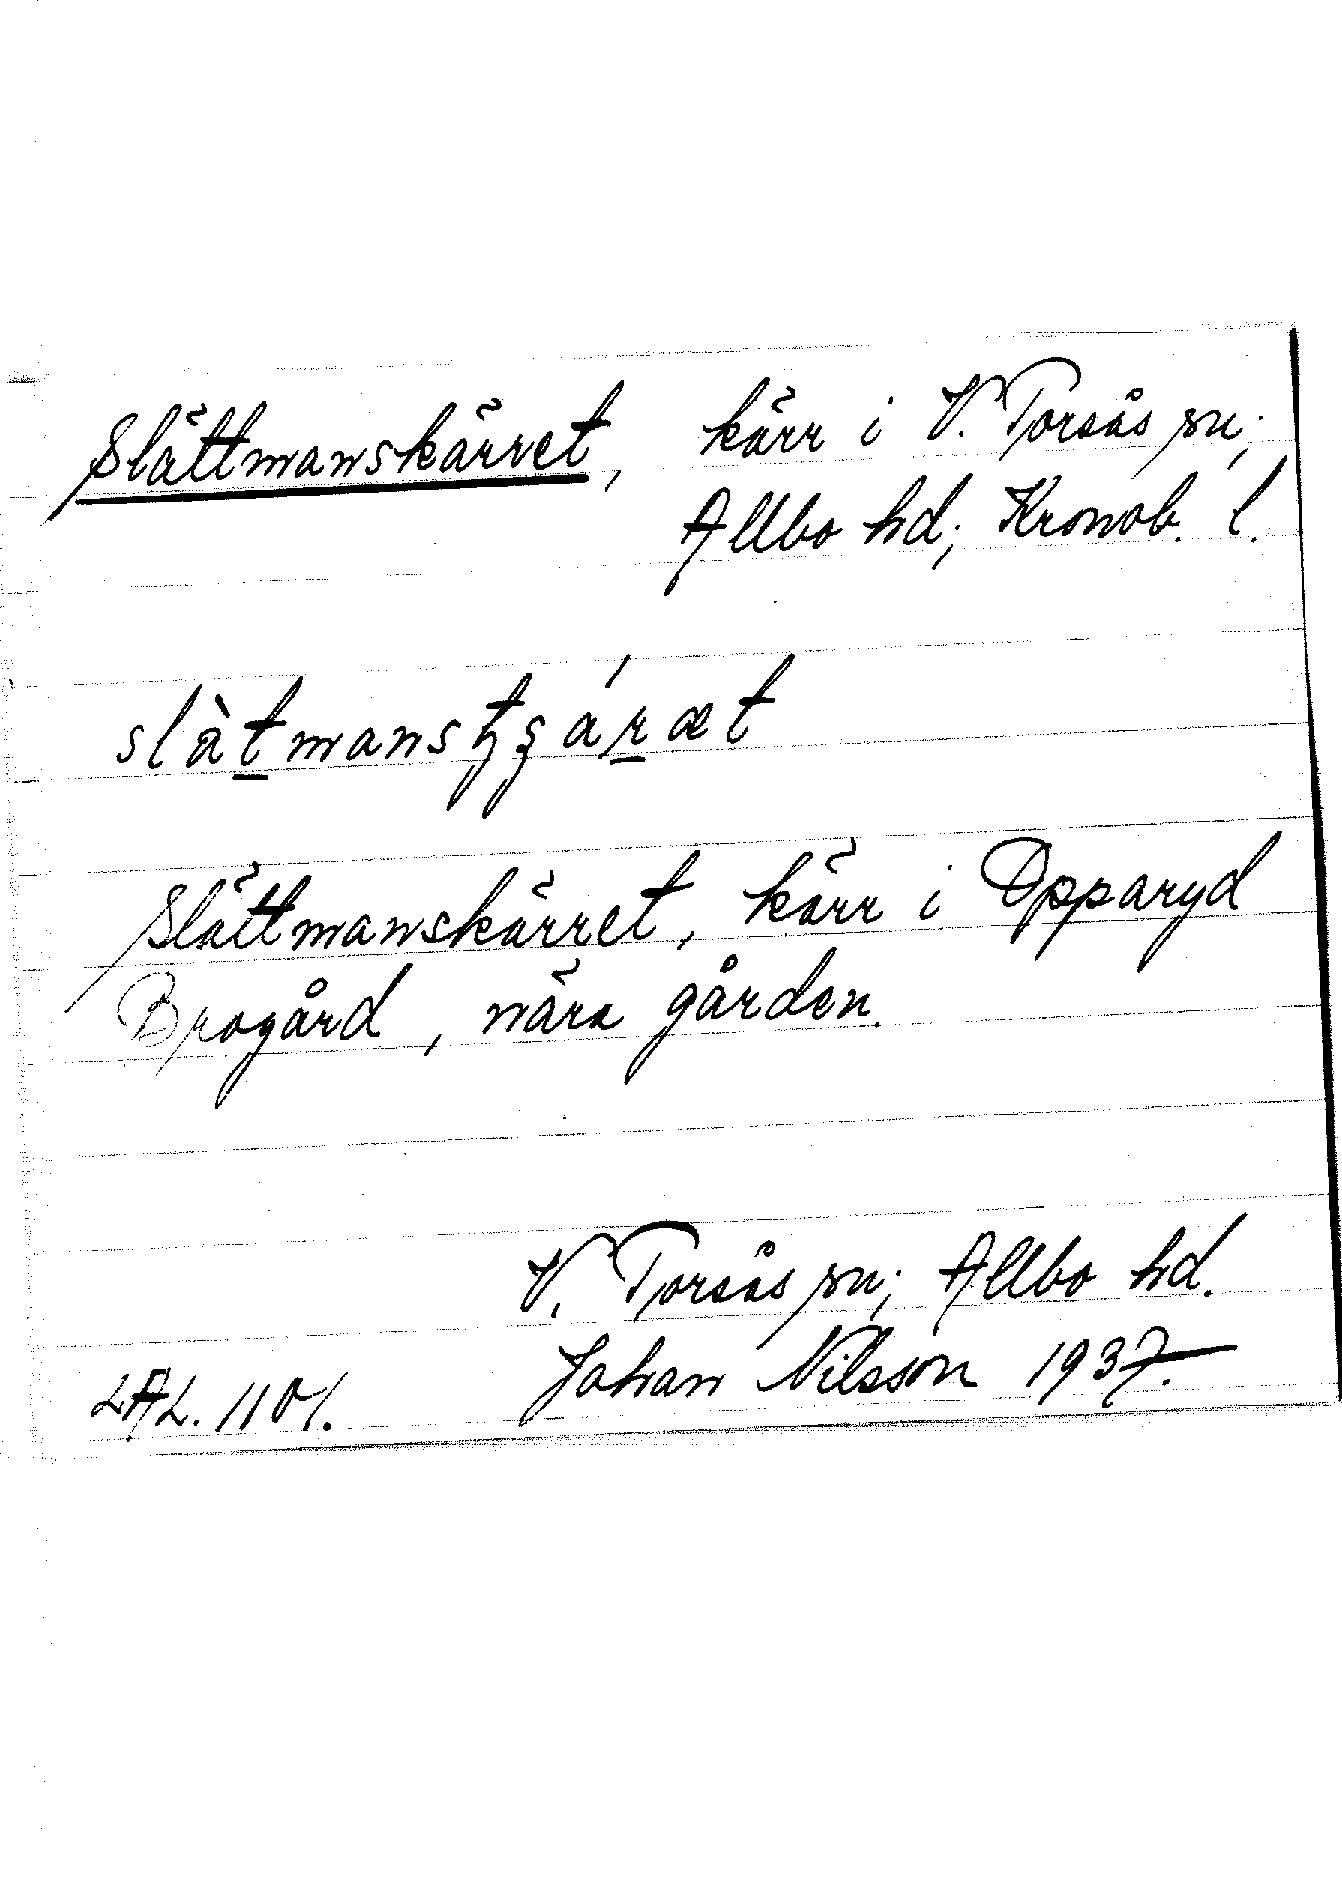 Slättmanskärret, kärr i V. Torsås sn;
Allbo hd; Kronob. l.
slàtmanstʂáræt
Slättmanskärret, kärr i Opparyd
Brogård, nära gården.
V. Torsås sn; Allbo hd.
Johan Nilsson 1937.
LAL. 1101.